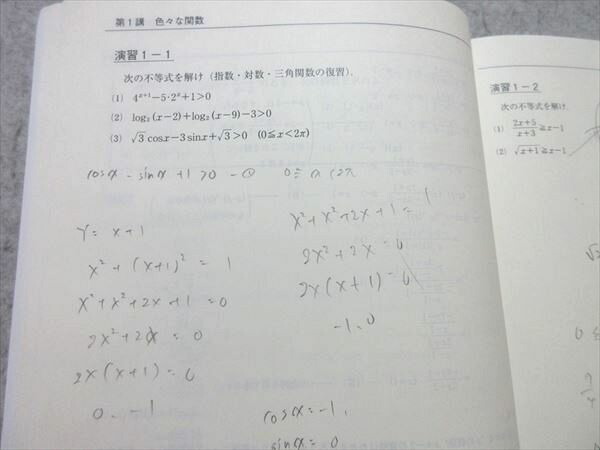 第1講 色々な関数
演習1-1
次の不等式を解け（指数・対数・三角関数の復習）.
(1) 4^{x+1}-5·2^x+1>0
(2) log₂(x-2)+log₂(x-9)-3>0
(3) √3 cosx-3sinx+√3>0 (0≦x<2π)
cosα - sinα + 1 > 0 - ①
Y = x+1
x² + (x+1)² = 1
x² + x² + 2x + 1 = 0
2x² + 2x = 0
2x(x+1) = 0
0. -1
x² + x² + 2x + 1 = 1
2x² + 2x = 0
2x(x+1) = 0
-1.0
cosα = -1,
sinα = 0
演習1-2
次の不等式を解け.
(1) \frac{2x+5}{x+3}≧x-1
(2) √x+1≧x-1